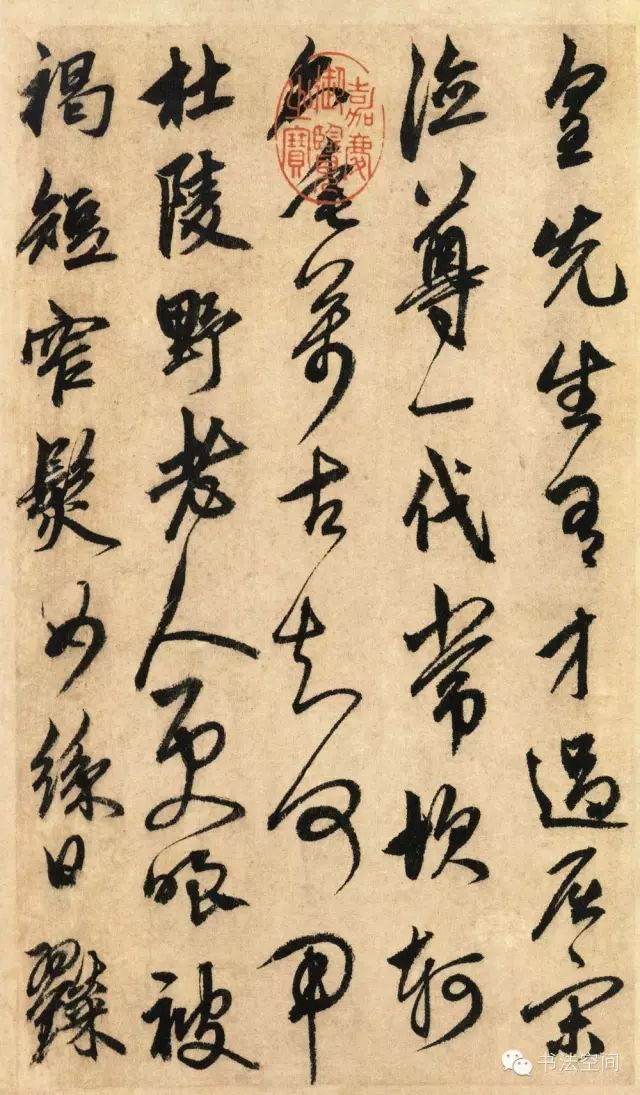 皇先生有才過屈宋
德尊一代常坎軻
名垂萬古知何用
杜陵野老人更嗤被
褐短窄鬢如絲日糴
嘉慶御覽之寶
书法空间